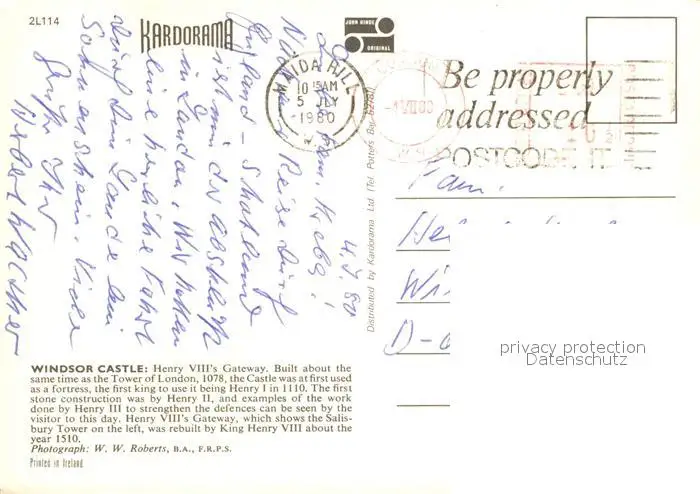 2L114
KARDORAMA
JOHN HINDE
ORIGINAL
MAIDA HILL
10 15 AM
5 JLY
1980
W.9
Be properly
addressed
POSTCODE IT
4.7.80
Fam. Krebs!
Nach Reise durch
England - Schottland
ist nun der Abschluß
in London. Wir hatten
eine herrliche Fahrt
durch die Lande bei
Sonnenschein. Viele
Grüße Ihr
Fam.
D-
Distributed by Kardorama Ltd (Tel Potters Bar 62781)
WINDSOR CASTLE: Henry VIII's Gateway. Built about the
same time as the Tower of London, 1078, the Castle was at first used
as a fortress, the first king to use it being Henry I in 1110. The first
stone construction was by Henry II, and examples of the work
done by Henry III to strengthen the defences can be seen by the
visitor to this day. Henry VIII's Gateway, which shows the Salis-
bury Tower on the left, was rebuilt by King Henry VIII about the
year 1510.
Photograph: W. W. Roberts, B.A., F.R.P.S.
Printed in Ireland
privacy protection
Datenschutz